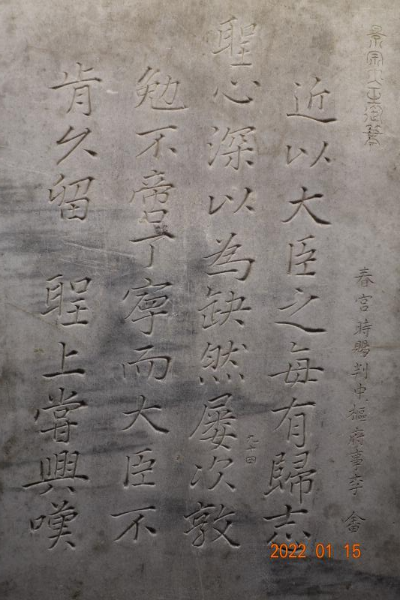 景宗大王御筆
春宮時賜判中樞府事李畬
近以大臣之每有歸志
聖心深以為缺然屢次敦
勉不啻丁寧而大臣不
肯久留 聖上嘗興嘆
2022 01 15